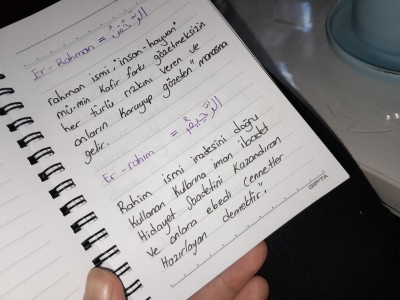 Er-Rahman = الرَّحْمٰنُ
rahman ismi "insan-hayvan"
mü-min kafir farkı gözetmeksizin
her türlü rızkını veren ve
onların koruyup gözeten" manasına
gelir.
Er-rahim = الرَّحِيمُ
Rahim ismi iradesini doğru
kullanan kullarına iman ibadet
Hidayet Saadetini kazandıran
ve onlara ebedi cennetler
Hazırlayan demektir."